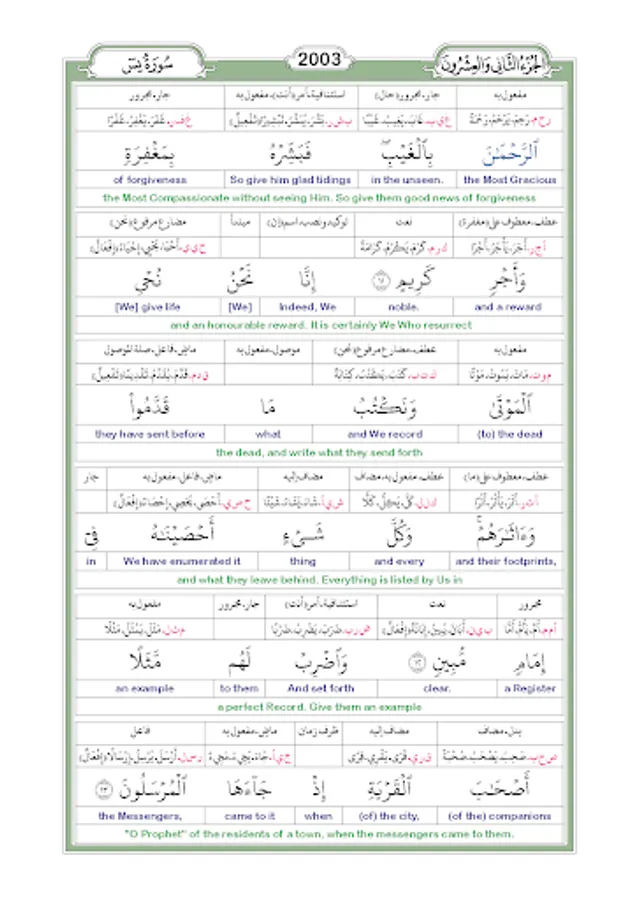 الجزء الثاني والعشرون 2003 سورة يس
مفعول به جار، مجرور (حال) استئنافية، أمر (أنت)، مفعول به جار، مجرور
ٱلرَّحْمَٰنَ بِٱلْغَيْبِ ۖ فَبَشِّرْهُ بِمَغْفِرَةٍ
of forgiveness So give him glad tidings in the unseen. the Most Gracious
the Most Compassionate without seeing Him. So give them good news of forgiveness
عطف، معطوف على (مغفرة) نعت توكيد ونصب، اسم (إن) مبتدأ مضارع مرفوع (نحن)
وَأَجْرٍ كَرِيمٍ ١١ إِنَّا نَحْنُ نُحْىِ
[We] give life [We] Indeed, We noble. and a reward
and an honourable reward. It is certainly We Who resurrect
مفعول به عطف، مضارع مرفوع (نحن) موصول، مفعول به ماض، فاعل، صلة الموصول
ٱلْمَوْتَىٰ وَنَكْتُبُ مَا قَدَّمُوا۟
they have sent before what and We record (to) the dead
the dead, and write what they send forth
عطف، معطوف على (ما) عطف، مفعول به، مضاف مضاف إليه ماض، فاعل، مفعول به جار
وَءَاثَٰرَهُمْ ۚ وَكُلَّ شَىْءٍ أَحْصَيْنَٰهُ فِىٓ
in We have enumerated it thing and every and their footprints,
and what they leave behind. Everything is listed by Us in
مجرور نعت استئنافية، أمر (أنت) جار، مجرور مفعول به
إِمَامٍ مُّبِينٍ ١٢ وَٱضْرِبْ لَهُم مَّثَلًا
an example to them And set forth clear. a Register
a perfect Record. Give them an example
بدل، مضاف مضاف إليه ظرف زمان ماض، مفعول به فاعل
أَصْحَٰبَ ٱلْقَرْيَةِ إِذْ جَآءَهَا ٱلْمُرْسَلُونَ ١٣
the Messengers, came to it when (of) the city, (of the) companions
"O Prophet" of the residents of a town, when the messengers came to them.